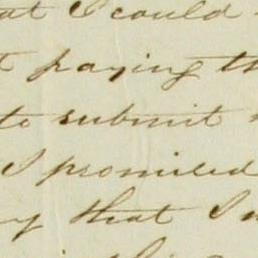 at I could
t paying th
to submit
I promised
y that I